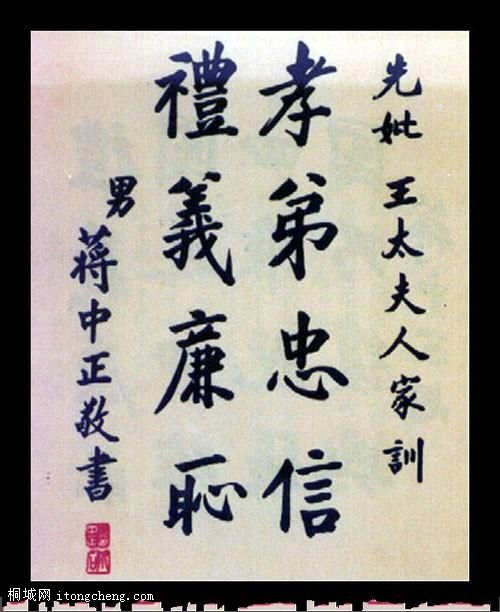 先妣 王太夫人家訓
孝弟忠信
禮義廉恥
男 蔣中正敬書
桐城网 itongcheng.com